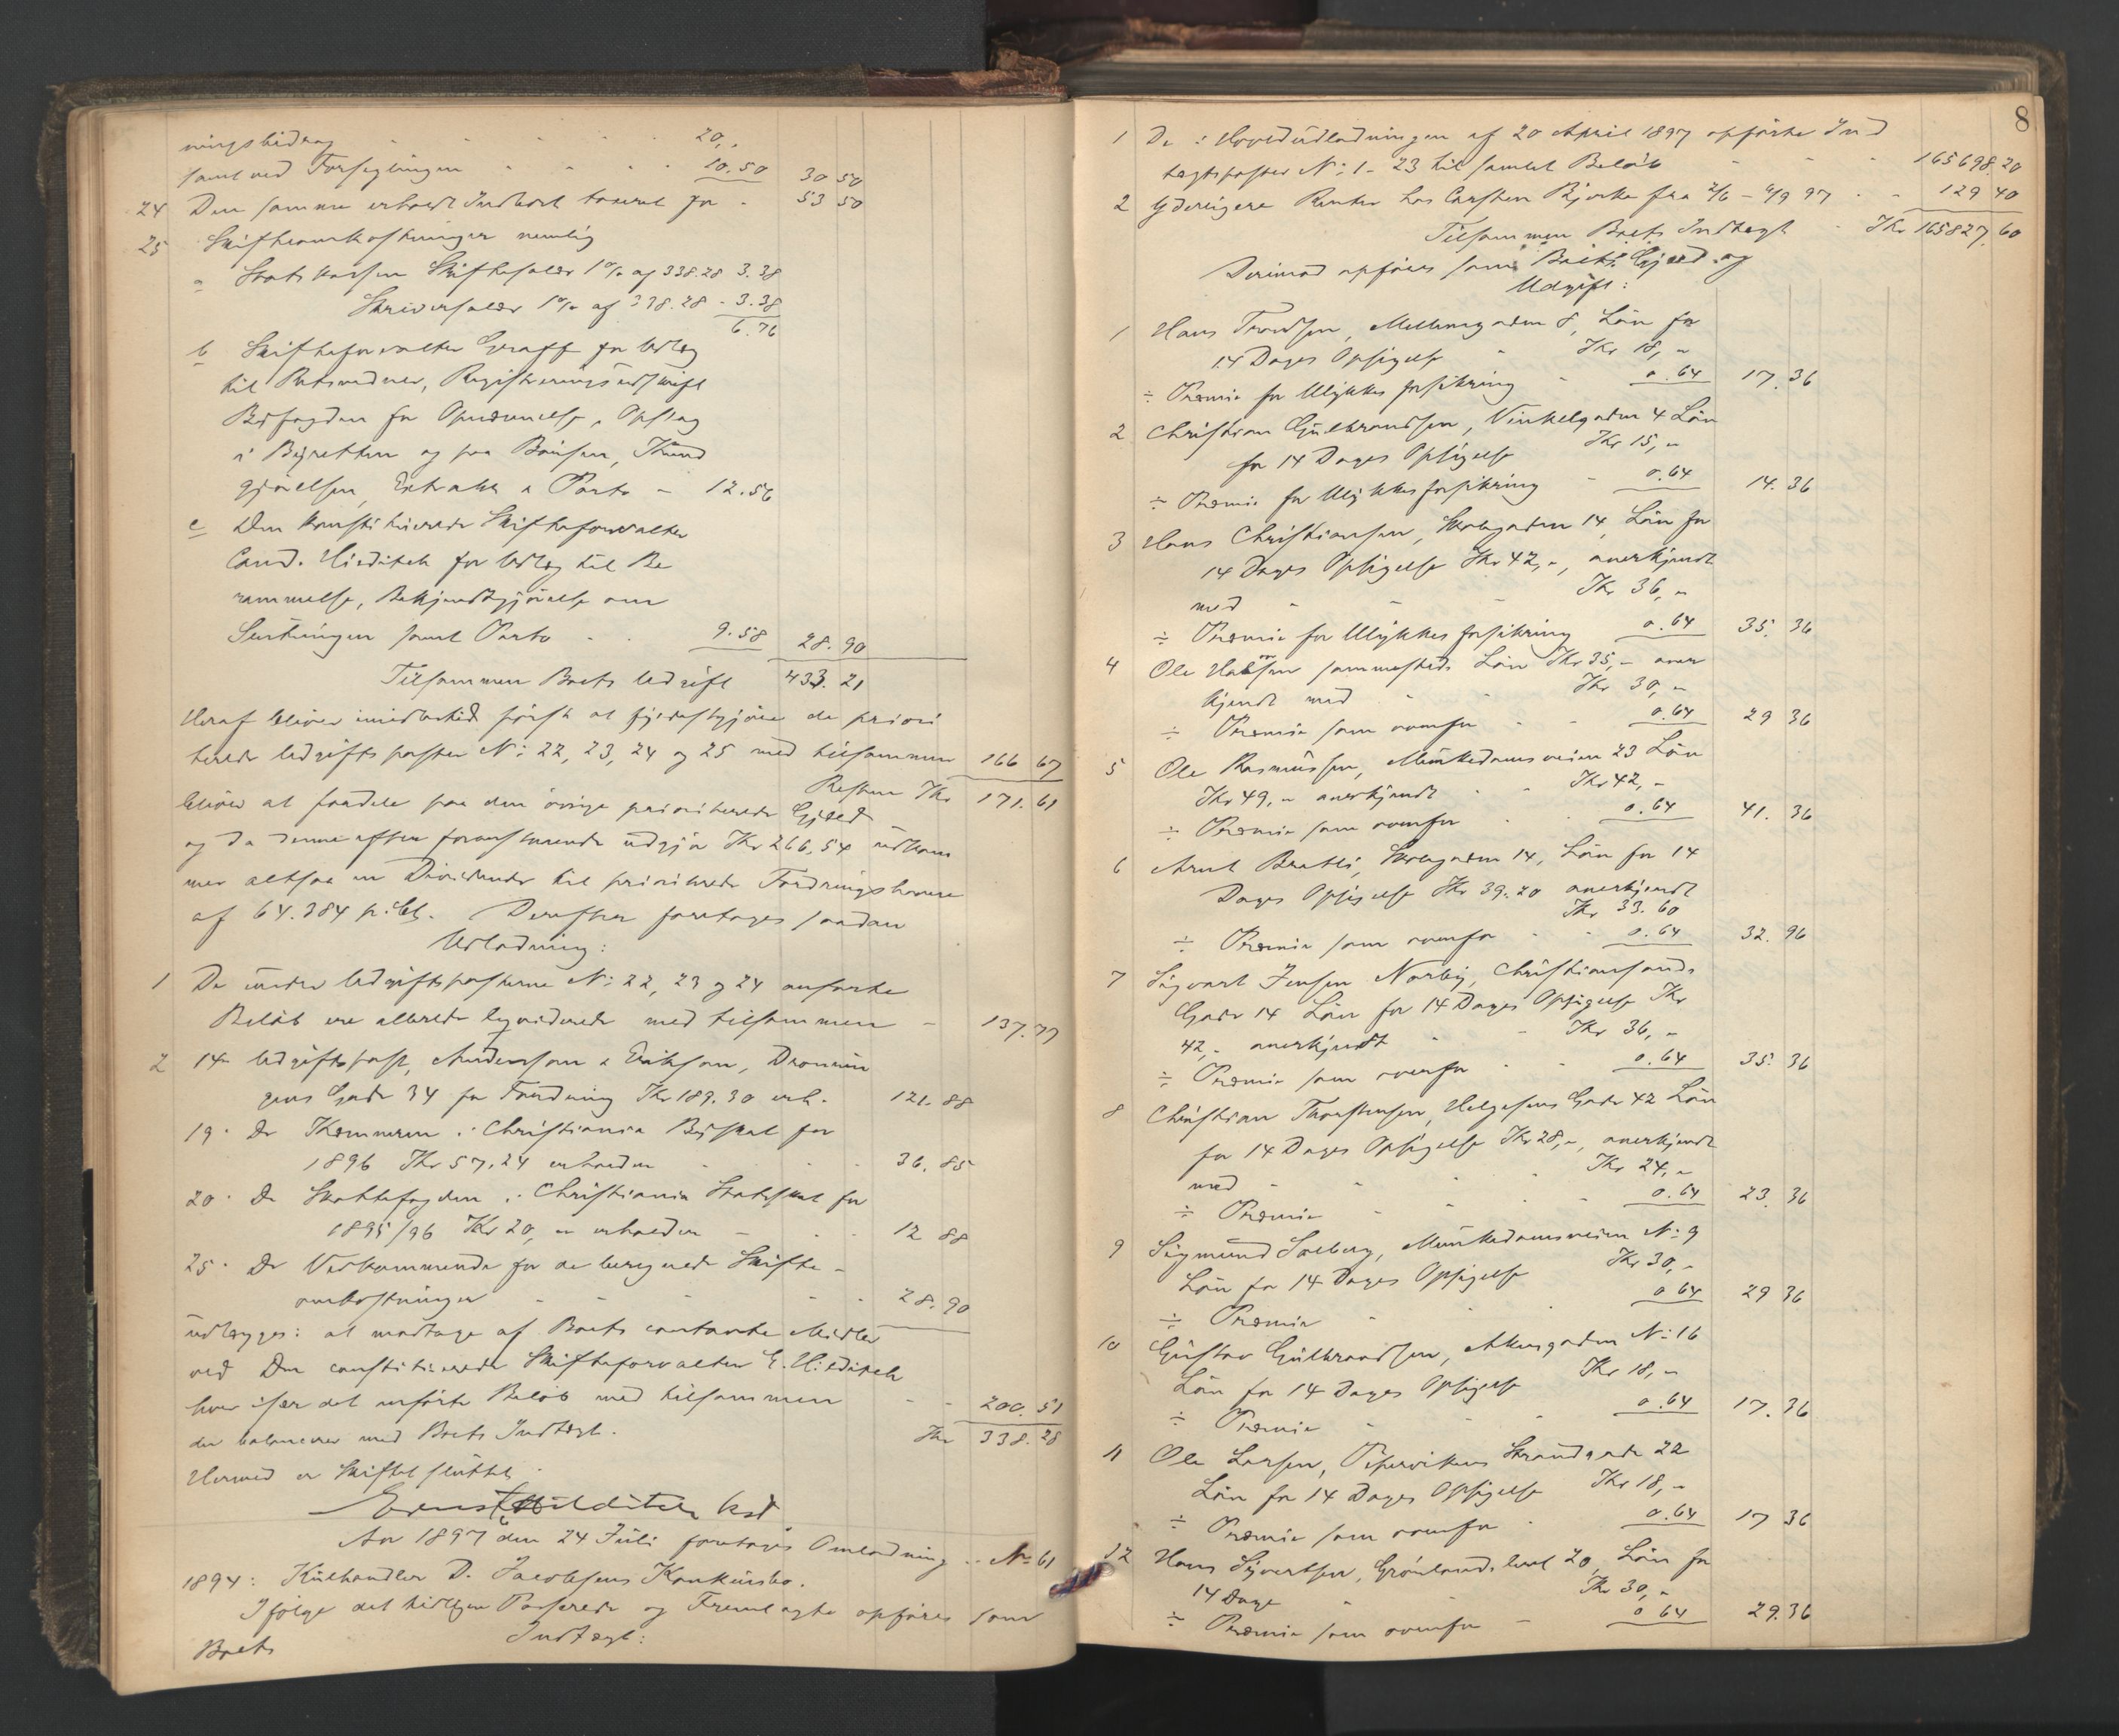 ningsbidrag - - - - - 20,-
samt ved Forseglingen - - - - 10.50 30 50
24 Den samme erholdt Indbort taxeret for - 53 50
25 Skifteomkostninger nemlig
a Statskassen Skiftesalær 1% af 338.28 3.38
Skriversalær 1% af 338.28 - 3.38
6.76
b Skifteforvalter Graff for Udlæg
til Retsvidner, Registreringsudskrift
Byfogden for Opnævnelse, Opslag
i Byretten og paa Börsen, Kund
gjörelsen, Extrakt & Porto - 12.56
c Den konstituerede Skifteforvalter
Cand. Hilditch for Udlæg til Be
rammelse, Bekjendtgjörelse om
Slutningen samt Porto - - 9.58 28.90
Tilsammen Boets Udgift 433.21
Heraf bliver imidlertid først at fyldestgjöre de priori
terede Udgiftsposter N: 22, 23, 24 og 25 med tilsammen 166 67
Resten Kr 171.61
bliver at fordele paa den övrige prioriterede Gjæld
og da denne efter foranstaaende udgjör Kr 266,54 udkom
mer altsaa en Dividende til prioriterede Fordringshavere
af 64.384 p.Ct. Derefter foretages saadan
Udlodning:
1 De under Udgiftsposterne N: 22, 23 og 24 anførte
Belöb ere allerede liqviderede med tilsammen - 137.77
2 14 Udgiftspost, Andersson & Erikson, Dronnin
gens Gade 34 for Fordring Kr 189.30 erh. 121.88
19. Do Kæmneren i Christiania Byskat for
1896 Kr 57.24 erholder - - - 36.85
20. Do Skattefogden i Christiania Statsskat for
1895/96 Kr 20,- erholder - - - 12 88
25. Do Vedkommende for de beregnede Skifte-
omkostninger - - - - 28.90
udlægges: at modtage af Boets contante Midler
ved Den constituerede Skifteforvalter E. Hilditch
hver især det anførte Belöb med tilsammen - - 200.51
der balancerer med Boets Indtægt. Kr 338.28
Hermed er Skiftet sluttet.
Ernst Hilditch kst
Aar 1897 den 24 Juli foretoges Omlodning i N: 61
1894: Kulhandler D. Jacobsens Konkursbo.
Ifölge det tidligere Passerede og Fremlagte opføres som
Boets Indtægt:
8
1 De i Hovedudlodningen af 20 April 1897 opførte Ind
tægtsposter N: 1 - 23 til samlet Belöb - - - 165698.20
2 Yderligere Renter hos Carsten Bjerke fra 2/6 - 4/9 97 - - 129 40
Tilsammen Boets Indtægt - Kr 165827.60
Derimod opføres som Boets Gjæld og
Udgift:
1 Hans Trondsen, Mellemgaden 8, Lön for
14 Dages Opsigelse - Kr 18,-
÷ Præmie for Ulykkesforsikring - 0.64 17.36
2 Christian Gulbrandsen, Vinkelgaden 4 Lön
for 14 Dages Opsigelse Kr 15,-
÷ Præmie for Ulykkesforsikring - 0.64 14.36
3 Hans Christiansen, Skolegaden 14, Lön for
14 Dages Opsigelse Kr 42,-, anerkjendt
med - - - Kr 36,-
÷ Præmie for Ulykkesforsikring 0.64 35.36
4 Ole sammesteds Lön Kr 35,- aner
kjendt med - - Kr 30,-
÷ Præmie som ovenfor - - 0.64 29 36
5 Ole Rasmussen, Munkedamsveien 23 Lön
Kr 49,- anerkjendt - - Kr 42,-
÷ Præmie som ovenfor - - 0.64 41.36
6 Arnt Bratli, Skolegaden 14, Lön for 14
Dages Opsigelse Kr 39.20 anerkjendt
Kr 33.60
÷ Præmie som ovenfor - - 0.64 32.96
7 Sigvart Jensen Norby, Christiansands
Gade 14 Lön for 14 Dages Opsigelse Kr
42,- anerkjendt - - Kr 36,-
÷ Præmie som ovenfor - - 0.64 35.36
8 Christian Thorstensen, Helgesens Gade 42 Lön
for 14 Dages Opsigelse Kr 28,-, anerkjendt
med - - - Kr 24,-
÷ Præmie - - - 0.64 23.36
9 Sigmund Solberg, Munkedamsveien N: 9
Lön for 14 Dages Opsigelse Kr 30,-
÷ Præmie - - 0 64 29 36
10 Gustav Gulbrandsen, Akersgaden N: 16
Lön for 14 Dages Opsigelse Kr 18,-
÷ Præmie - - - 0.64 17.36
11 Ole Larsen, Pipervikens Strandgade 22
Lön for 14 Dages Opsigelse Kr 18,-
÷ Præmie som ovenfor - - 0.64 17 36
12 Hans Syvertsen, Grönlandsleret 20, Lön for
14 Dage - - Kr 30,-
÷ Præmie som ovenfor - 0 64 29.36